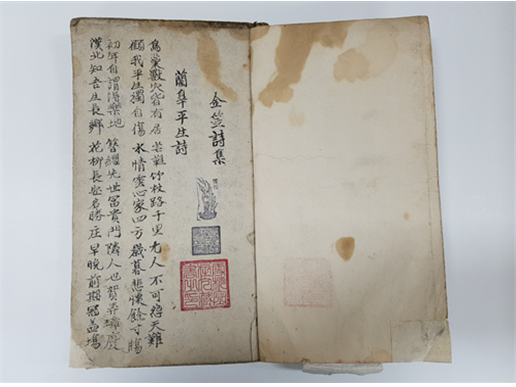 金笠詩集
蘭皐平生詩
鳥巢獸穴皆有居 芒鞋竹杖路千里 尤人不可怨天難
顧我平生獨自傷 水性雲心家四方 歲暮悲懷餘寸腸
初年自謂得樂地 簪纓先世富貴門 隣人也賀弄璋慶
漢北知吾生長鄕 花柳長安名勝庄 早晚前期冠盖場